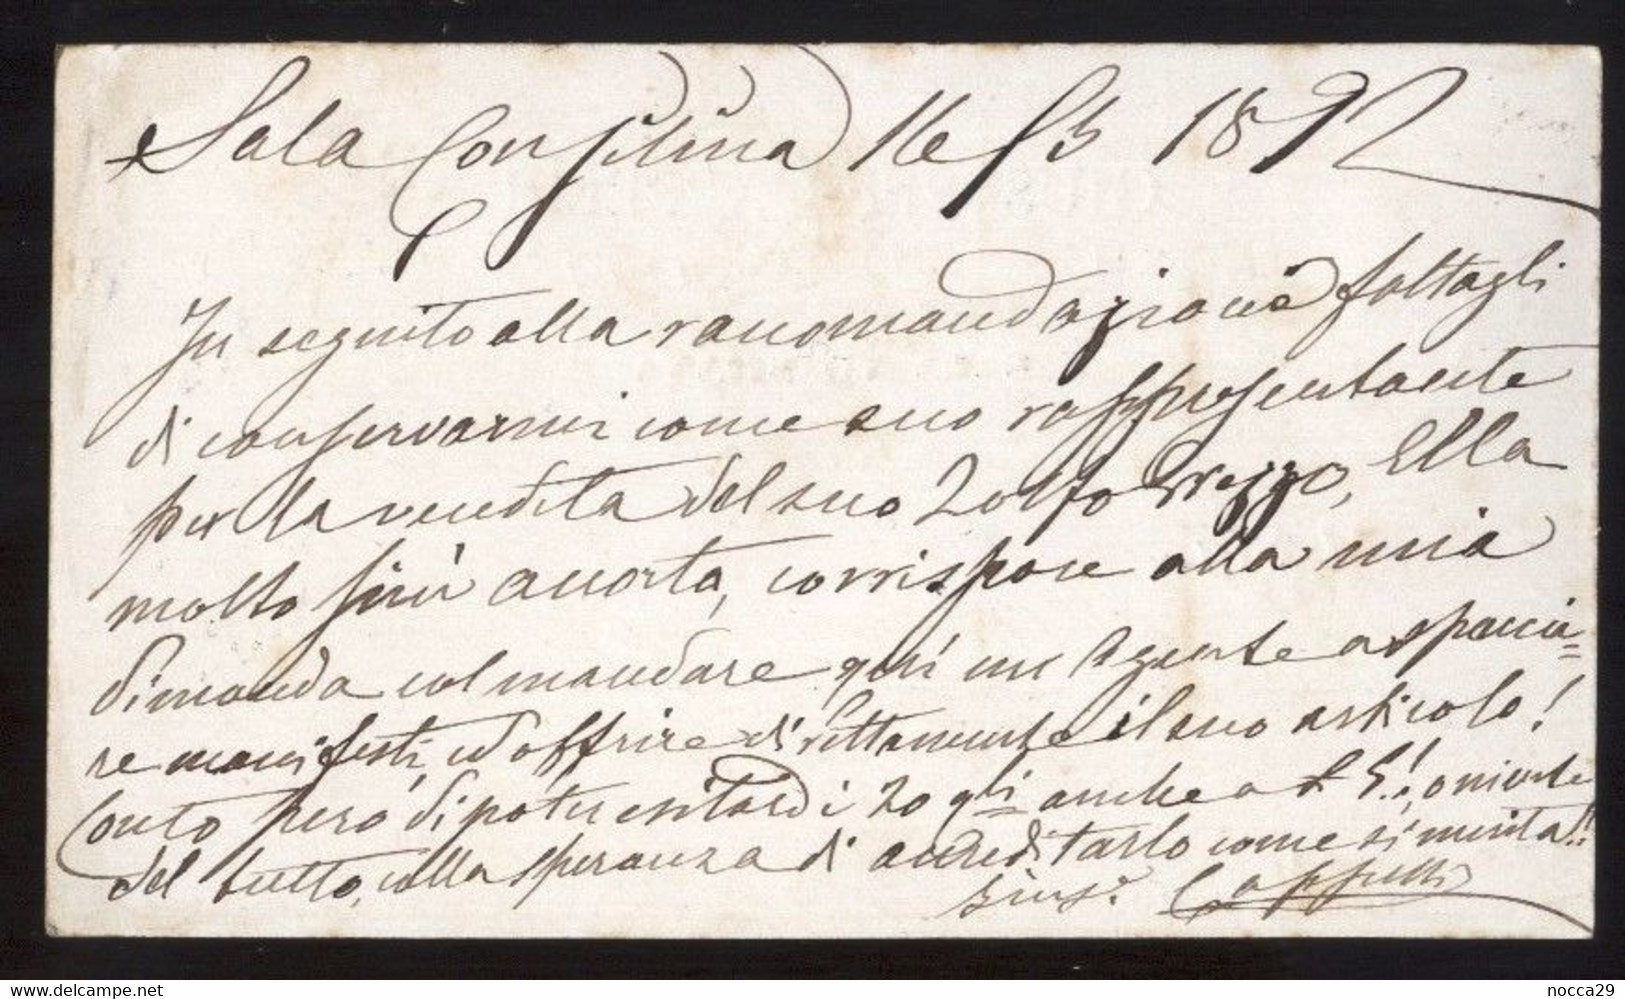 Sala Consilina 16 fb 1892
In seguito alla raccomandazione fattagli
di conservarmi come suo rappresentante
per la vendita del suo Zolfo Grezzo, Ella
molto più accorta, corrispose alla mia
dimanda col mandare qui un Agente a spaccia=
re manifesti, ed offrire direttamente il suo articolo!
Conto però di poter esitardi 20 qli anche a £ 5!, o niente
del tutto, colla speranza di accreditarlo come si merita!!
Gius.e Cappelli
www.delcampe.net
nocca29